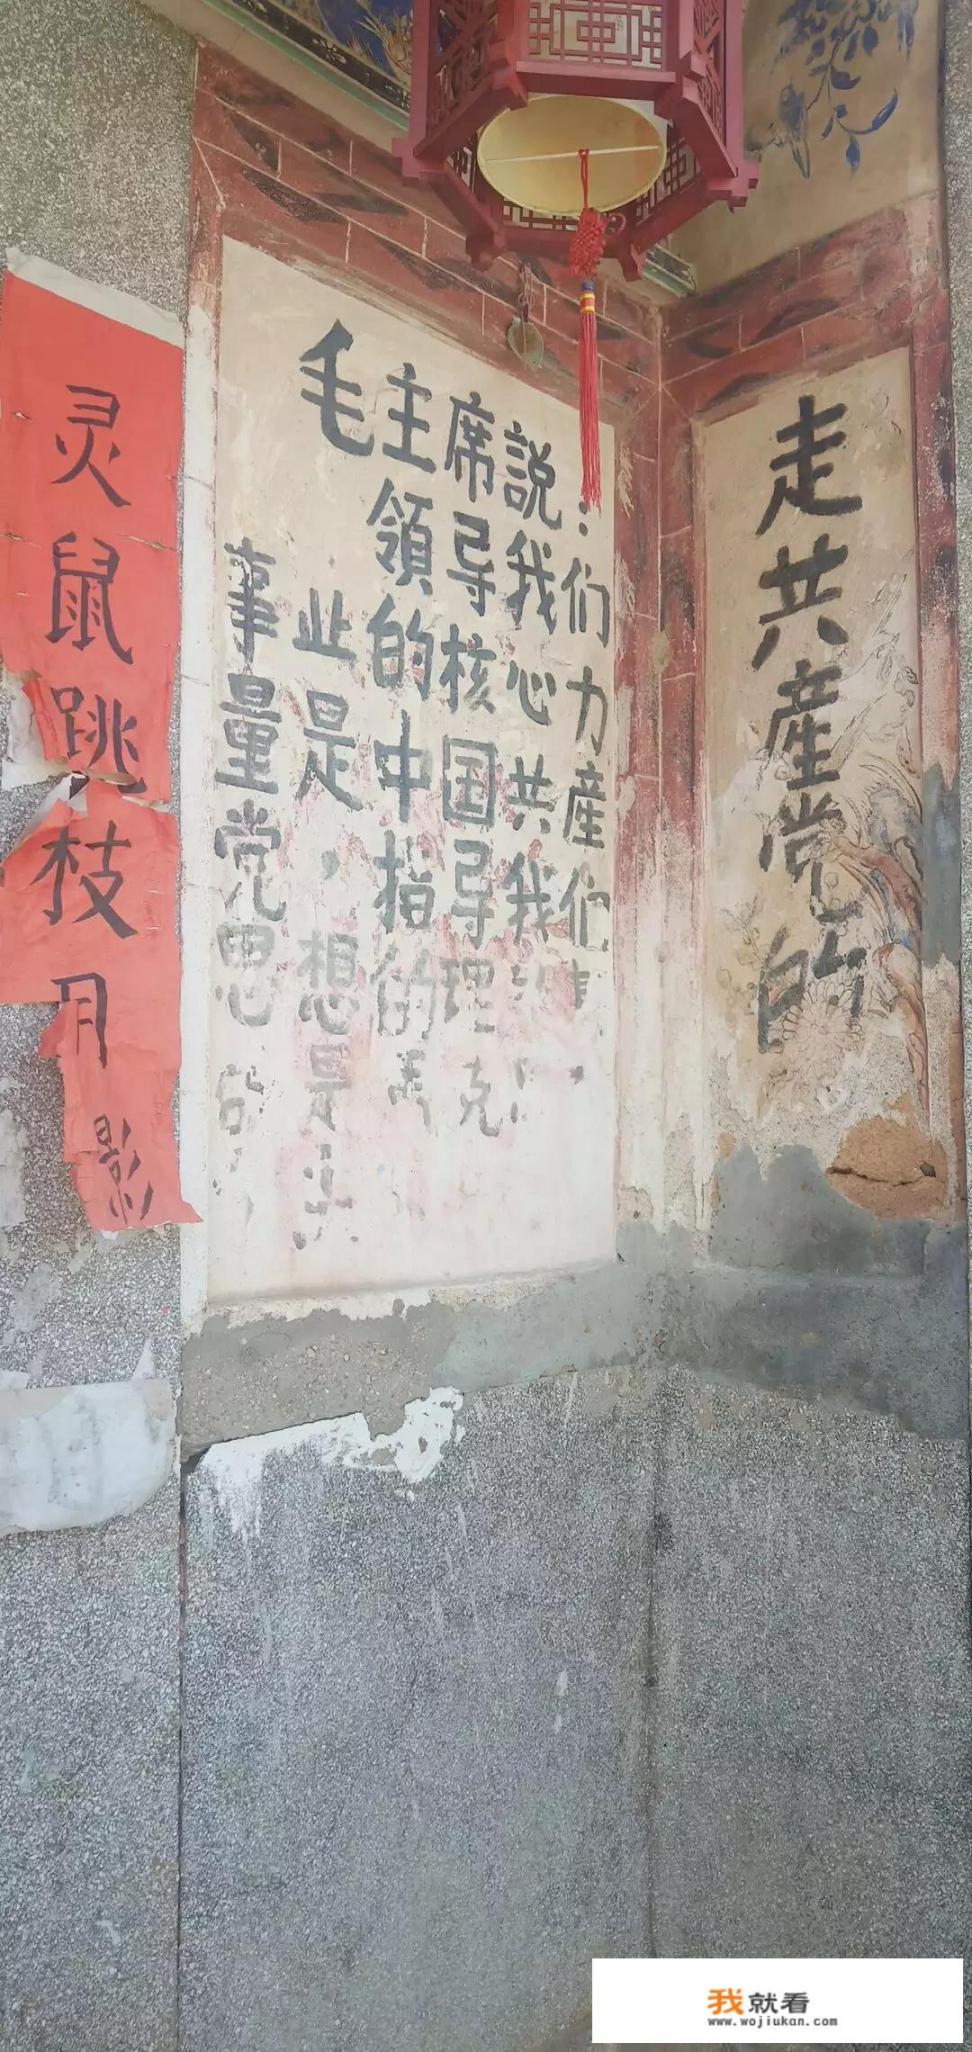 灵鼠跳枝月影
毛主席說：
領导我们
事业的核心力
量是中国共產
党，指导我们
思想的理
是馬克
走共產党的
我就看
www.wojiukan.com